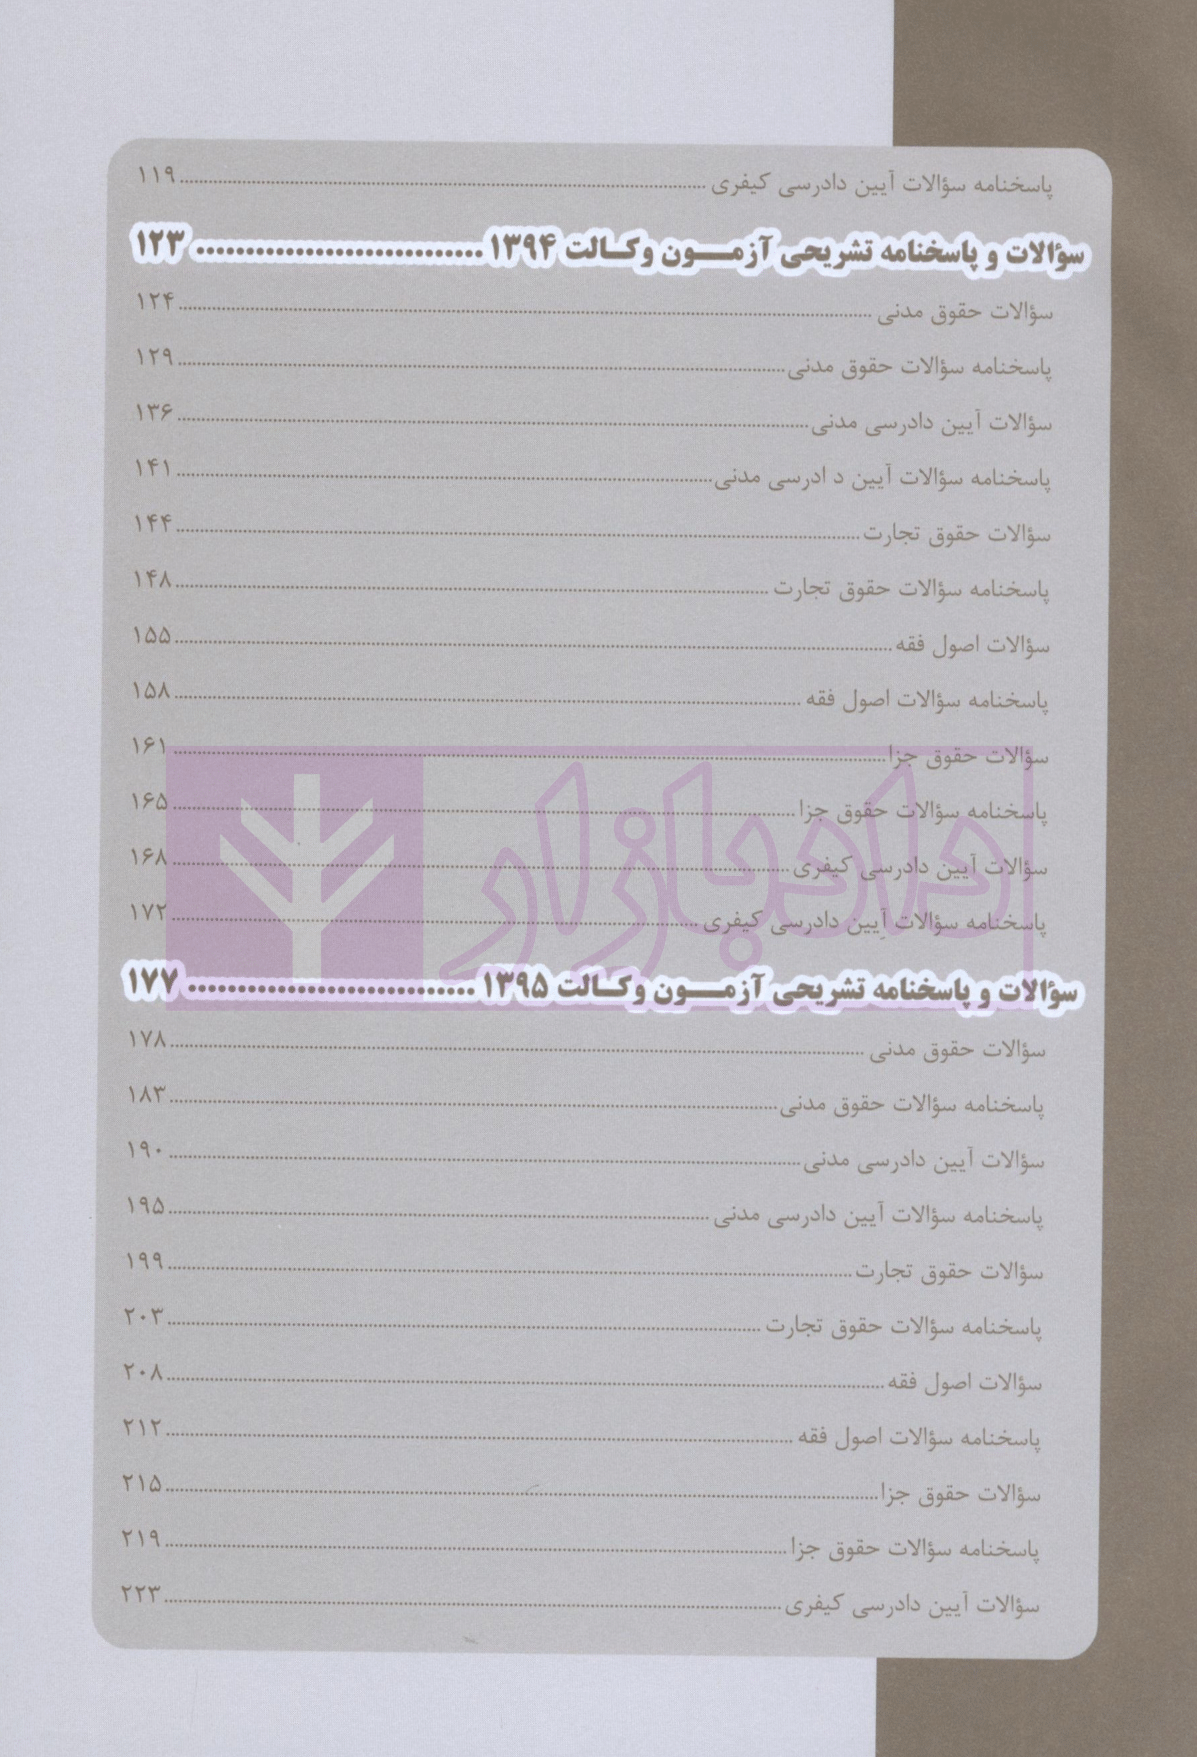 پاسخنامه سؤالات آیین دادرسی کیفری ........ ۱۱۹
سؤالات و پاسخنامه تشریحی آزمـــون وکـالت ۱۳۹۴ ........ ۱۲۳
سؤالات حقوق مدنی ........ ۱۲۴
پاسخنامه سؤالات حقوق مدنی ........ ۱۲۹
سؤالات آیین دادرسی مدنی ........ ۱۳۶
پاسخنامه سؤالات آیین د ادرسی مدنی ........ ۱۴۱
سؤالات حقوق تجارت ........ ۱۴۴
پاسخنامه سؤالات حقوق تجارت ........ ۱۴۸
سؤالات اصول فقه ........ ۱۵۵
پاسخنامه سؤالات اصول فقه ........ ۱۵۸
سؤالات حقوق جزا ........ ۱۶۱
پاسخنامه سؤالات حقوق جزا ........ ۱۶۵
سؤالات آیین دادرسی کیفری ........ ۱۶۸
پاسخنامه سؤالات آیین دادرسی کیفری ........ ۱۷۲
دادبازار
سؤالات و پاسخنامه تشریحی آزمـــون وکـالت ۱۳۹۵ ........ ۱۷۷
سؤالات حقوق مدنی ........ ۱۷۸
پاسخنامه سؤالات حقوق مدنی ........ ۱۸۳
سؤالات آیین دادرسی مدنی ........ ۱۹۰
پاسخنامه سؤالات آیین دادرسی مدنی ........ ۱۹۵
سؤالات حقوق تجارت ........ ۱۹۹
پاسخنامه سؤالات حقوق تجارت ........ ۲۰۳
سؤالات اصول فقه ........ ۲۰۸
پاسخنامه سؤالات اصول فقه ........ ۲۱۲
سؤالات حقوق جزا ........ ۲۱۵
پاسخنامه سؤالات حقوق جزا ........ ۲۱۹
سؤالات آیین دادرسی کیفری ........ ۲۲۳